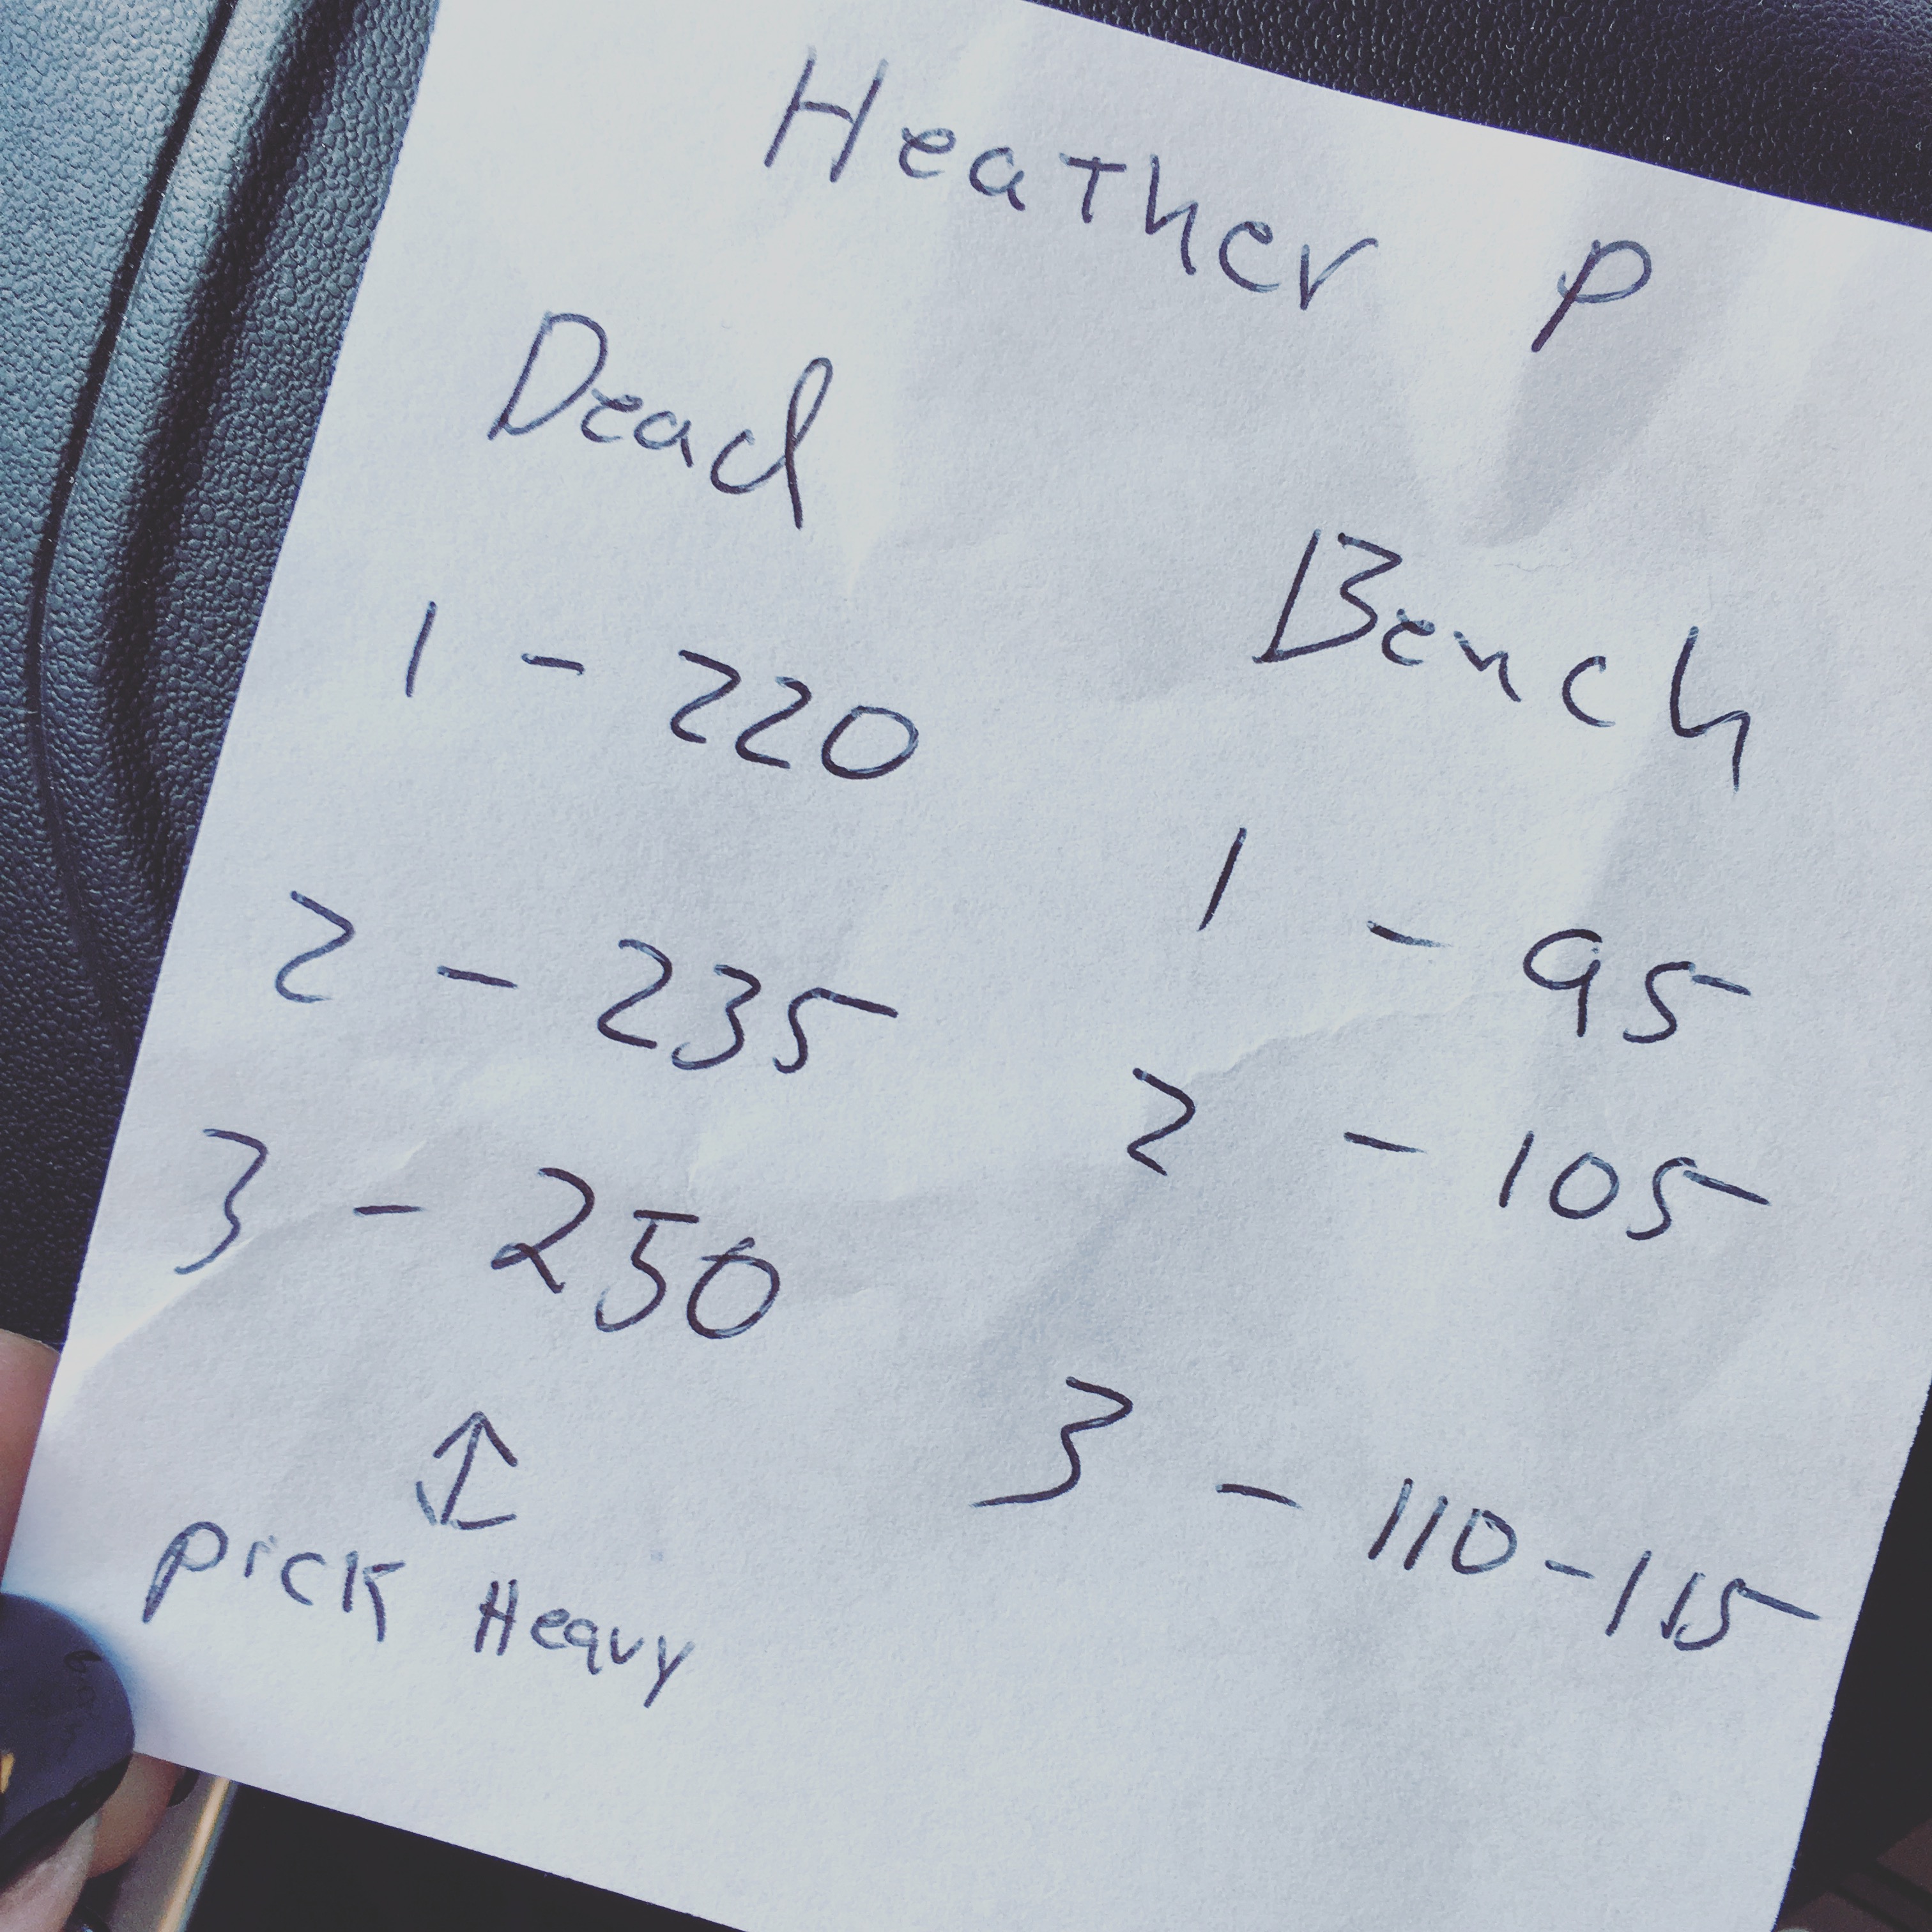 Heather P
Dead
1 - 220
2 - 235
3 - 250
pick Heavy
Bench
1 - 95
2 - 105
3 - 110-115